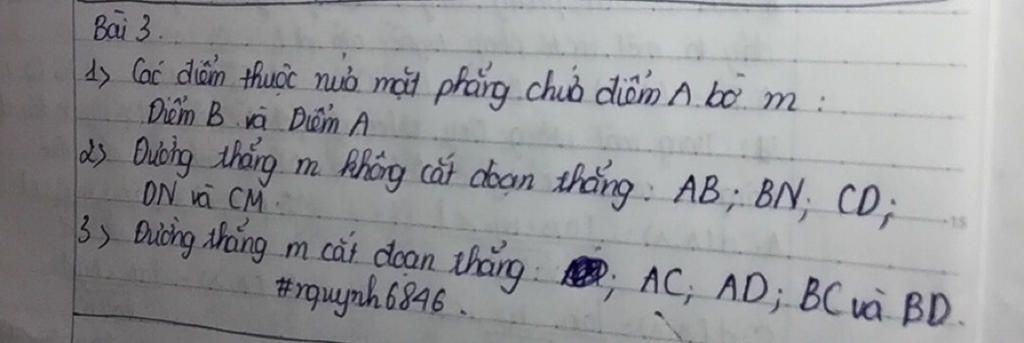 Bài 3.
1> Các điểm thuộc nửa mặt phẳng chứa điểm A bờ m :
Điểm B và Điểm A
2> Đường thẳng m không cắt đoạn thẳng : AB; BN; CD;
DN và CM.
3> Đường thẳng m cắt đoạn thẳng : ; AC; AD; BC và BD.
#rquynh6846.